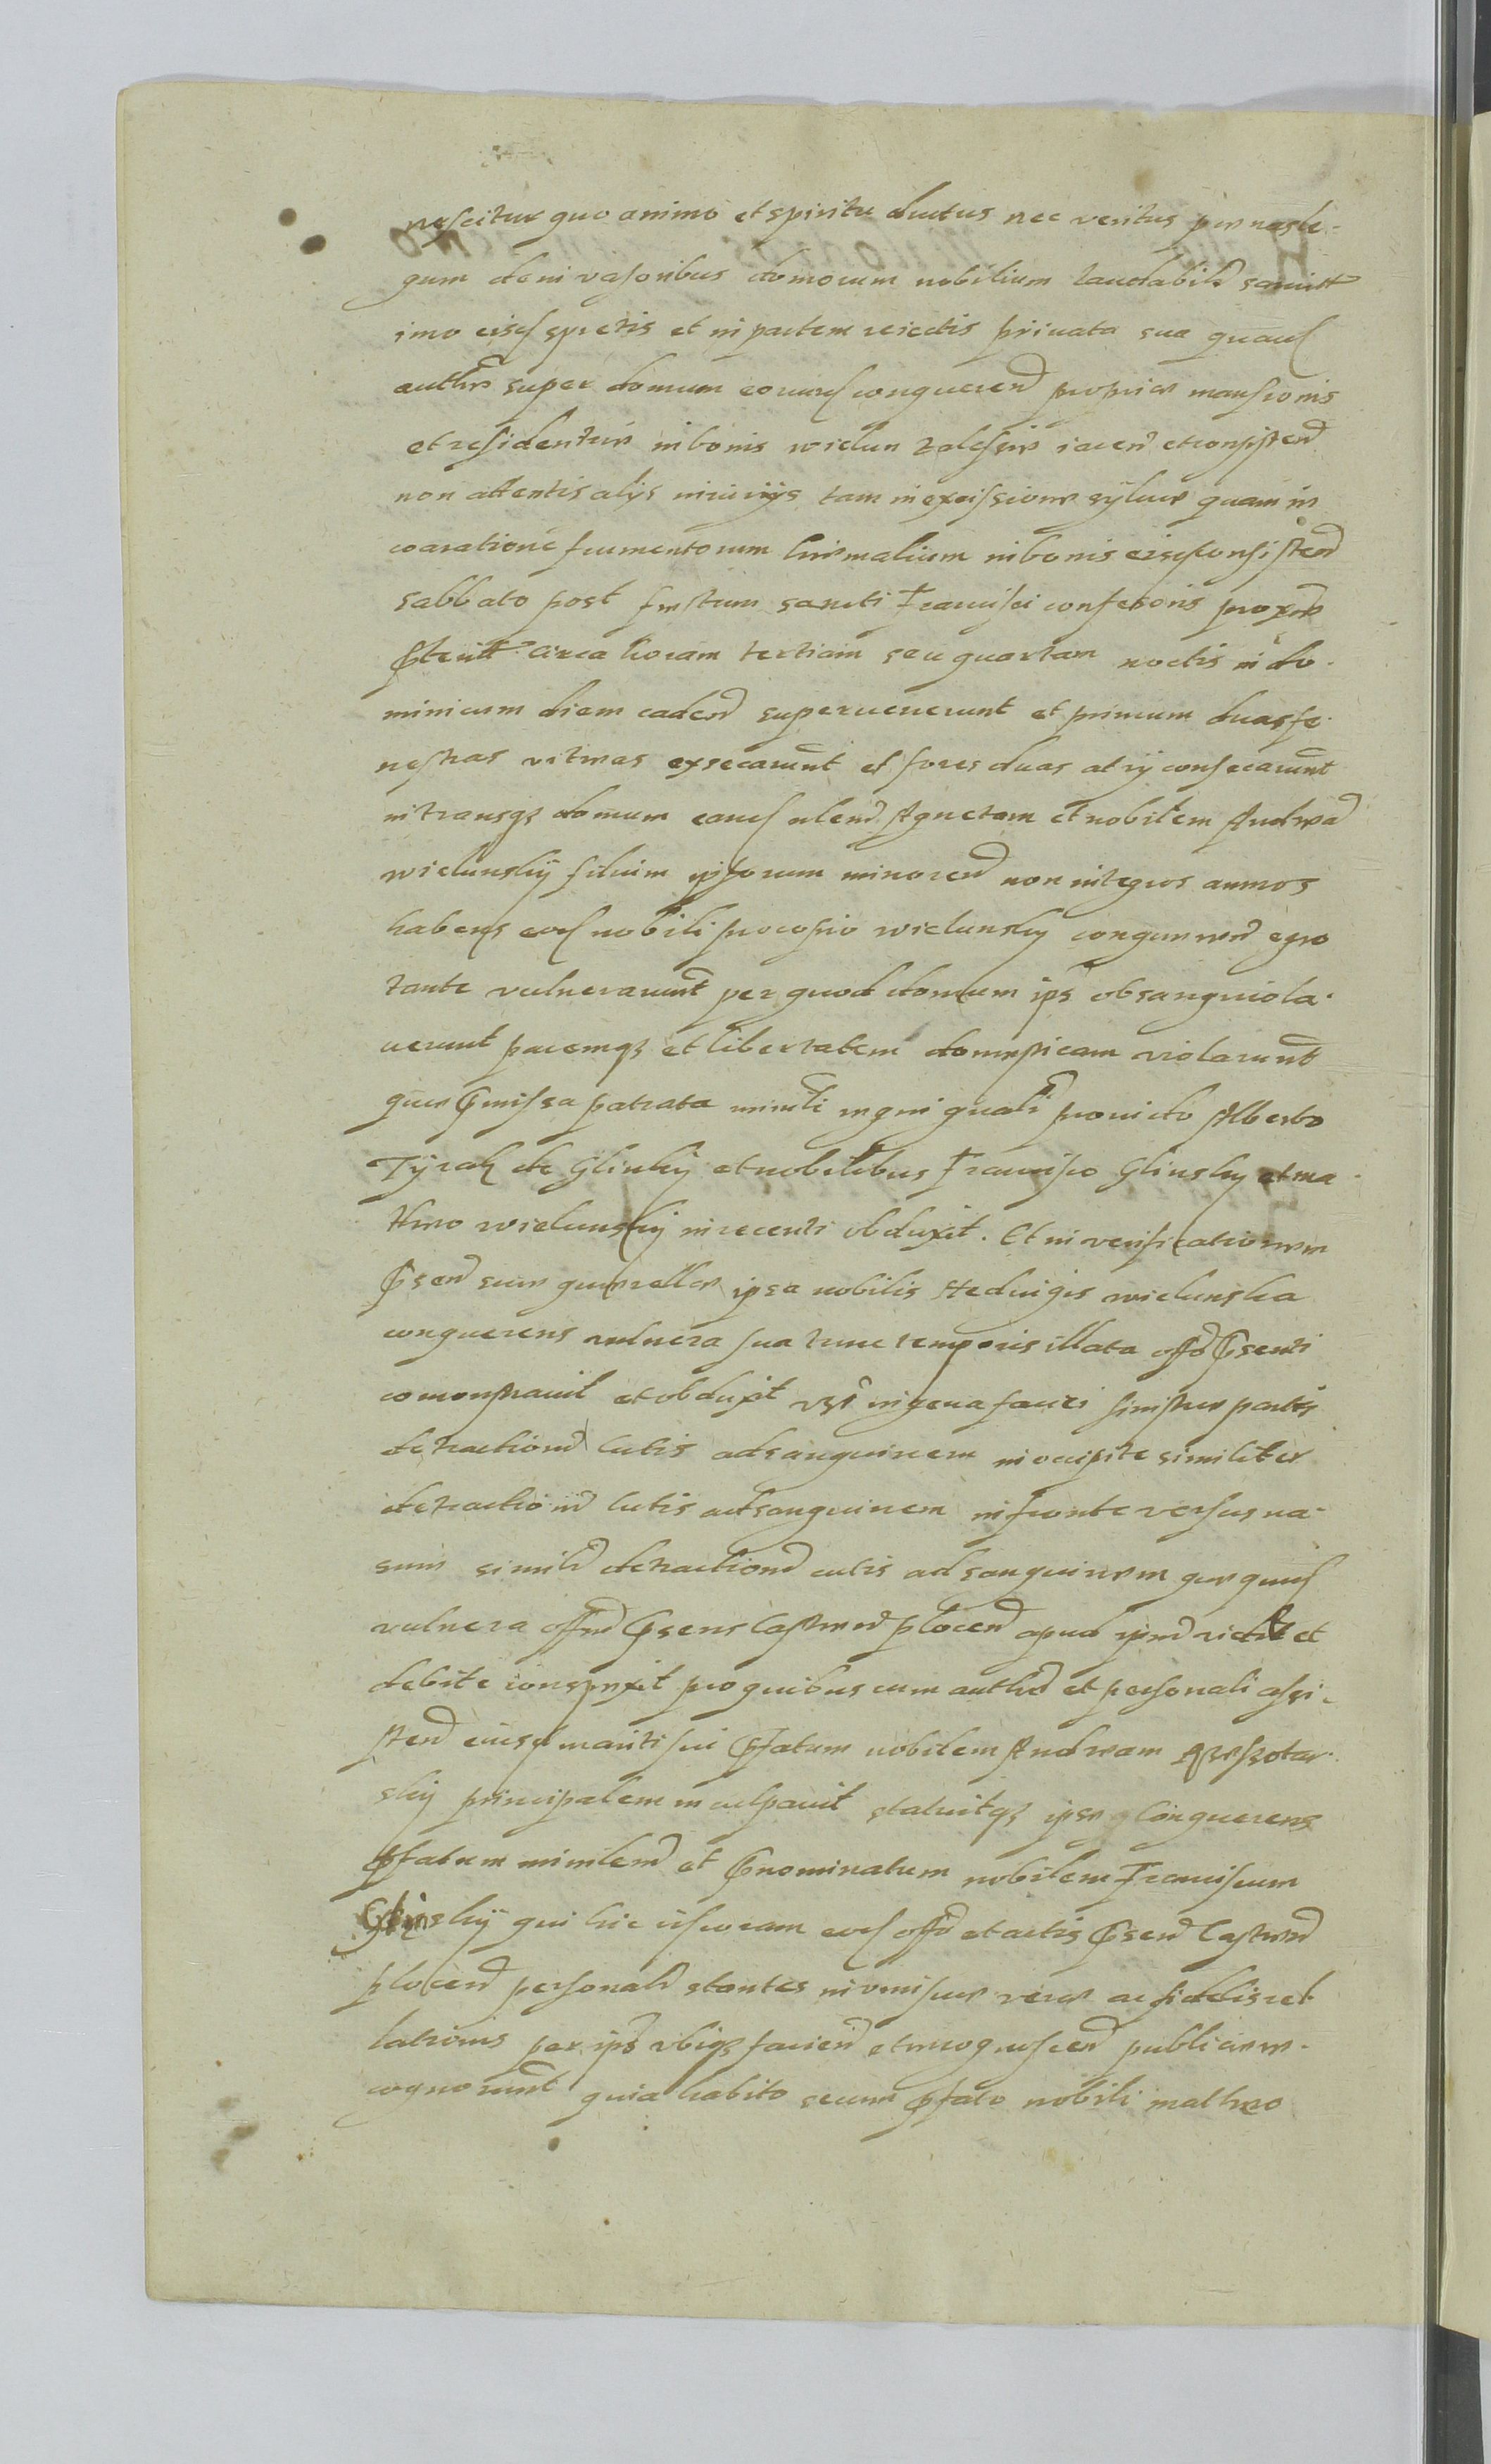 nescitur quo animo et spiritu ductus nec veritus penas le-
gum de invasoribus domorum nobilium laudabilr sancitt
imo eisd spretis et in partem reiectis privata sua quad
authte super domum eorund conqueren propriae mansionis
et residentiae in bonis wielun zalesie iacen et consisten
non attentis alÿs iniurijs tam in excissione sylvae quam in
coaratione frumentorum hiemalium in bonis eisd consisten
sabbato post festum sancti Francisci confessoris proxe
pteritt circa horam tertiam seu quartam noctis in do-
minicum diem caden supervenerunt et primum duas fe-
nestras vitreas exsecarunt et fores duas atrÿ consecarunt
intransq domum eand ulem Agnetem et nobilem Andream
wielunskÿ filium ipsorum minoren non integros annos
habens eod nobili procopio wielunsky conqueren egro
tante vulnerarunt per quod domum ips obsanguiola-
verunt pacemq et libertatem domesticam violarunt
quae pmissa patrata minrli regni quali provido Alberto
Tÿrak de Glinkÿ et nobilibus Francisco Glinsky et ma-
theo wielunskÿ in recenti obduxit. Et in verificationem
psen suae quaerellae ipsa nobilis Hedvigis wielunska
conquerens vulnera sua tunc temporis illata offo psenti
comonstravit et obduxit vz in gena fauci sinistrae partis
detractione cutis ad sanguinem in occipite similiter
detractione cutis ad sanguinem in fronte versus na-
sum similr detractione cutis ad sanguinem quaequid
vulnera offm psens Castren plocen apud ipm vidit et
debite conspexit pro quibus cum authte et personali assi-
sten eiusd mariti sui pfatum nobilem Andream
skÿ principalem inculpavit statuitq ipse Conquerens
pfatum minlem et pnominatum nobilem Franciscum
Glinskÿ qui hic iis coram eod offo et actis psen Castren
plocen personalr stantes in vim suae verae ac fidelis rel
lationis per ips ubiq facien et recognoscen publice re-
cognorunt quia habito secum pfato nobili matheo